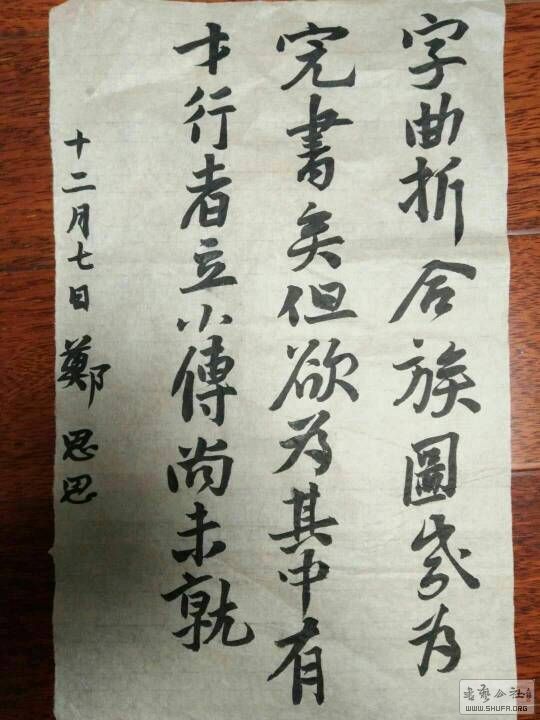 字曲折合族圖幾為
完書矣但欲為其中有
才行者立小傳尚未就
十二月七日鄭思思
書藝公社
WWW.SHUFA.ORG